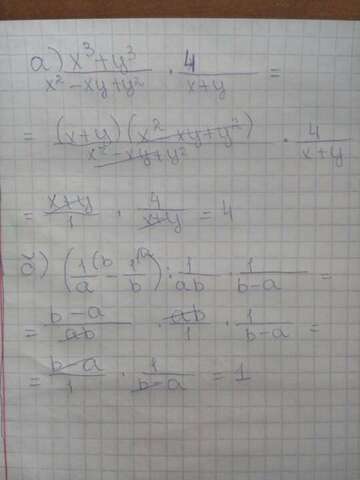 а) (x³+y³)/(x²-xy+y²) · 4/(x+y) =
= (x+y)(x²-xy+y²)/(x²-xy+y²) · 4/(x+y)
= (x+y)/1 · 4/(x+y) = 4
б) (1⁽ᵇ/a - 1⁽ᵃ/b) : 1/ab · 1/(b-a) =
= (b-a)/ab · ab/1 · 1/(b-a) =
= (b-a)/1 · 1/(b-a) = 1